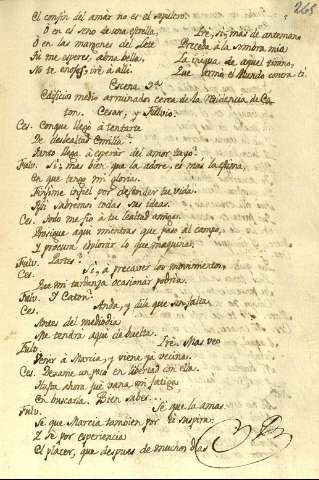 268
El confin del amar no es el sepulcro.
O en el seno de una estrella,
O en las margenes del Lete
Si me esperes, alma bella,
No te enojes, iré allí.
Iré, sí; mas de antemano
Preceda á la sombra mia
La de aquel tirano,
Que el Mundo contra ti
Escena 2ª
Edificio medio arruinado cerca de la residencia de Ca-
ton. Cesar, y Fulvio.
Ces. Conque llegó á tentarte
De deslealtad Emilia?
Tanto llega á esperar del amor tuyo?
Fulv. Sí; mas bien que la adore, es mas la
En que tengo mi gloria.
Finjome infiel por defender tu vida.
Asi sabremos todas sus ideas.
Ces. Todo me fio á tu lealtad amigo.
Prosigue aqui mientras que paso al campo,
Y procura explorar lo que maquina.
Fulv. Partes?
Ces. Sí, á precaver los movimientos,
Que mi tardanza ocasionar podria.
Fulv. Y Caton?
Ces. Anda, y dile que sin falta
Antes del mediodia
Me tendrá aqui de buelta.
Fulv. Iré. Mas veo
Venir á Marcia, y viene ya vecina.
Ces. Dexame un poco en libertad con ella.
Hasta ahora fué vana mi fatiga
En buscarla. Bien sabes...
Fulv. Sé que la amas.
Sé que Marcia tambien por ti suspira.
Y sé por experiencia
El placer, que despues de muchos dias